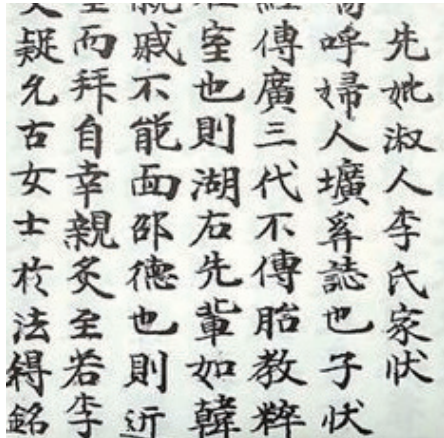 先妣淑人李氏家狀
呼婦人壙誌也子狀
傳廣三代不傳胎教粹
室也則湖右先輩如韓
戚不能面邵德也則近
而拜自幸親炙至若李
疑允古女士於法得銘